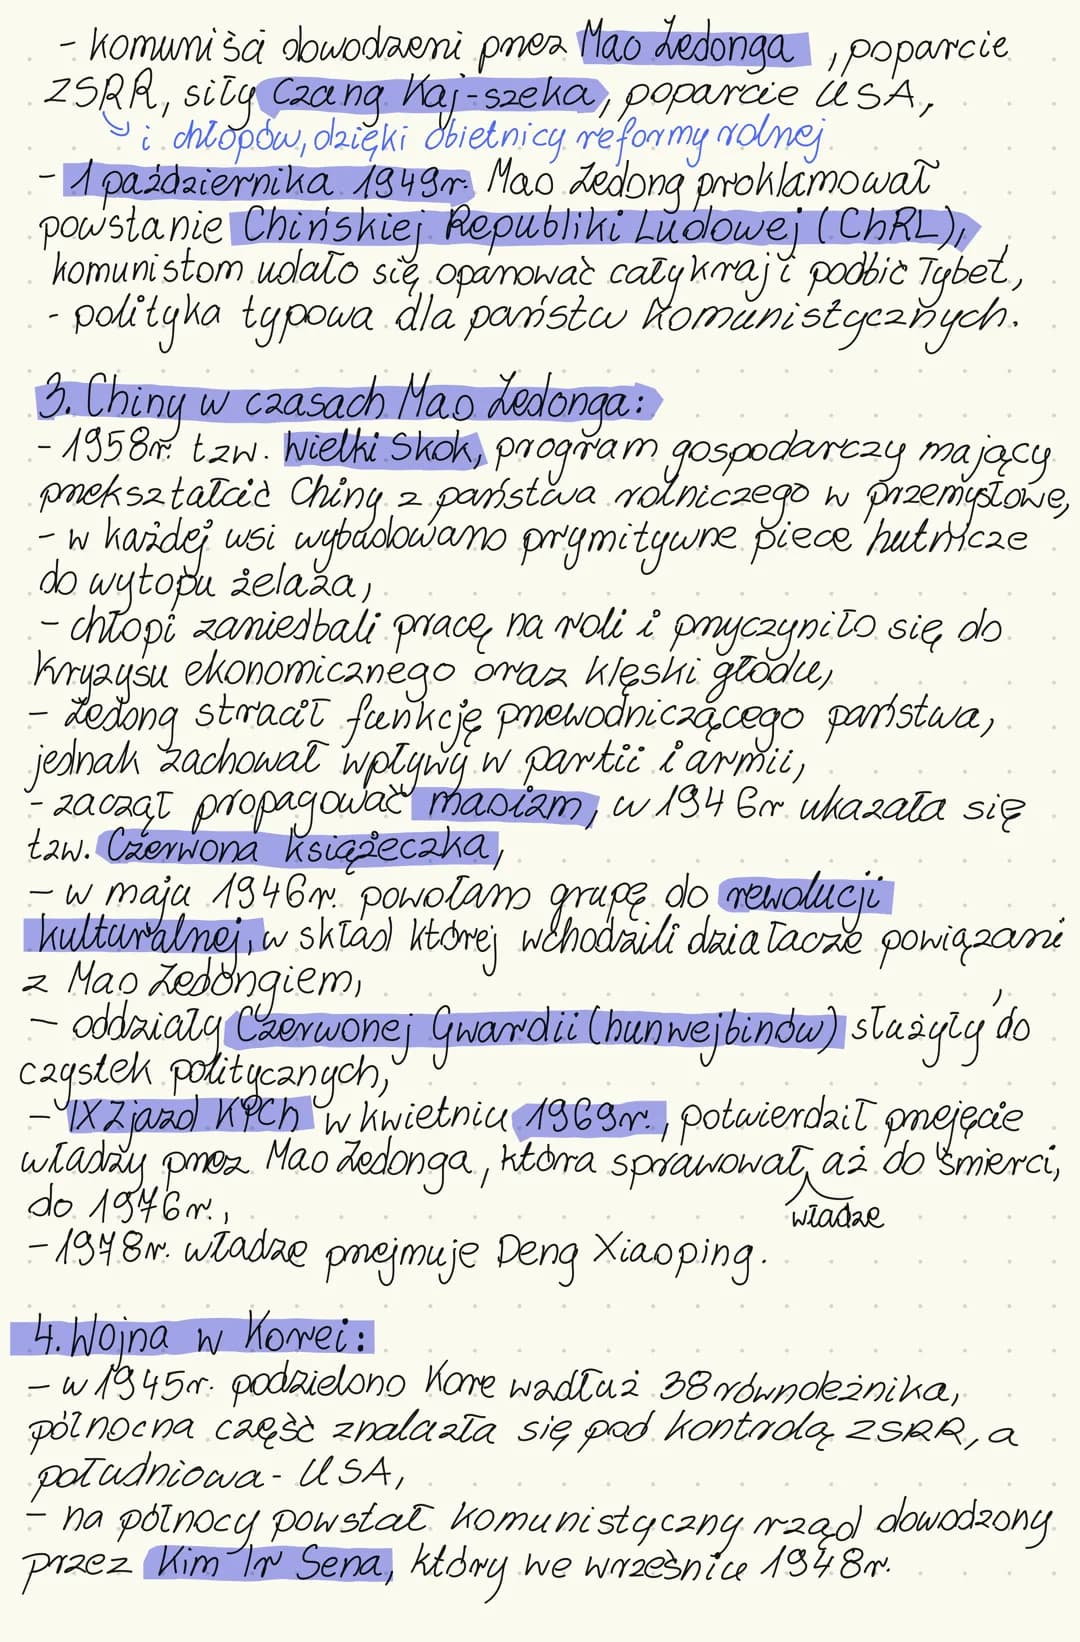 - komuniści dowodzeni przez Mao Zedonga, poparcie
ZSRR, siły Czang Kaj-szeka, poparcie USA,
i chłopów, dzięki obietnicy reformy rolnej
- 1 października 1949r. Mao Zedong proklamował
powstanie Chińskiej Republiki Ludowej (ChRL),
komunistom udało się opanować cały kraj i podbić Tybet,
- polityka typowa dla państw komunistycznych.
3. Chiny w czasach Mao Zedonga:
- 1958r. tzw. Wielki Skok, program gospodarczy mający
przekształcić Chiny z państwa rolniczego w przemysłowe,
- w każdej wsi wybudowano prymitywne piece hutnicze
do wytopu żelaza,
- chłopi zaniedbali pracę na roli i przyczyniło się do
kryzysu ekonomicznego oraz klęski głodu,
- Zedong stracił funkcję przewodniczącego państwa,
jednak zachował wpływy w partii i armii,
- zaczął propagować maoizm, w 1946r. ukazała się
tzw. Czerwona książeczka,
- w maju 1946r. powołano grupę do rewolucji
kulturalnej, w skład której wchodzili działacze powiązani
z Mao Zedongiem,
- oddziały Czerwonej Gwardii (hunwejbinów) służyły do
czystek politycznych,
- IX Zjazd KPCh w kwietniu 1969r., potwierdził przejęcie
władzy przez Mao Zedonga, która sprawował aż do śmierci,
do 1976r.,
władze
- 1978r. władze przejmuje Deng Xiaoping.
4. Wojna w Korei:
- w 1945r. podzielono Kore wzdłuż 38 równoleżnika,
północna część znalazła się pod kontrolą ZSRR, a
południowa - USA,
- na północy powstał komunistyczny rząd dowodzony
przez Kim Ir Sena, który we wrześnie 1948r.